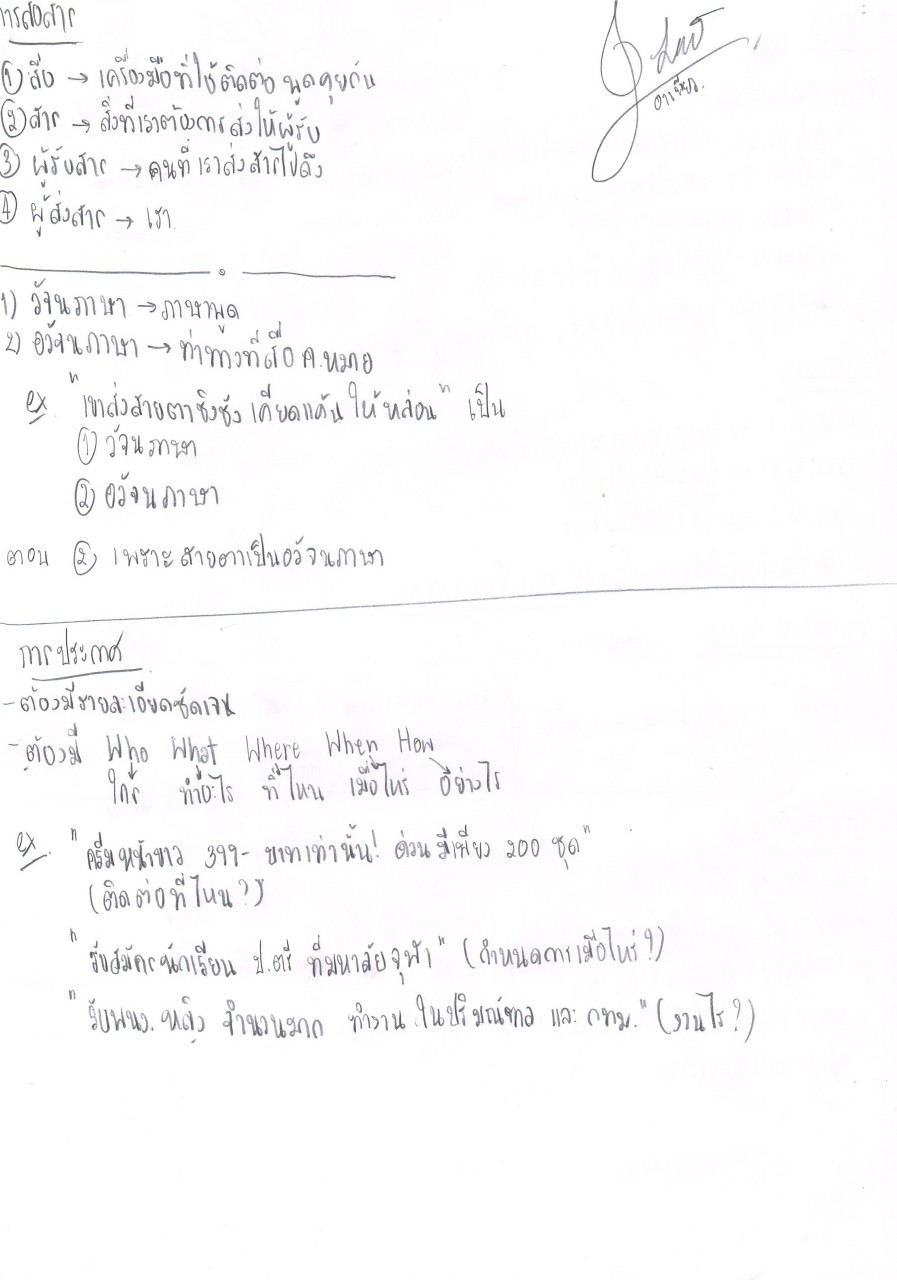 การสื่อสาร
① สื่อ → เครื่องมือที่ใช้ติดต่อ พูดคุยกัน
② สาร → สิ่งที่เราต้องการส่งให้ผู้รับ
③ ผู้รับสาร → คนที่เราส่งสารไปถึง
④ ผู้ส่งสาร → เรา
1) วัจนภาษา → ภาษาพูด
2) อวัจนภาษา → ท่าทางที่สื่อ ค.หมาย
ex "เขาส่งสายตาชิงชัง เคียดแค้น ให้หล่อน" เป็น
① วัจนภาษา
② อวัจนภาษา
ตอบ ② เพราะ สายตาเป็นอวัจนภาษา
การประกาศ
- ต้องมีรายละเอียดชัดเจน
- ต้องมี Who What Where When How
ใคร ทำอะไร ที่ไหน เมื่อไหร่ อย่างไร
ex. "ครีมหน้าขาว 399- บาทเท่านั้น! ด่วนมีเพียง 200 ชุด"
(ติดต่อที่ไหน?)
"รับสมัครนักเรียน ป.ตรี ที่มหาลัยจุฬา" (กำหนดการเมื่อไหร่?)
"รับพนง. หญิง จำนวนมาก ทำงานในปริมณฑล และ กทม." (งานไร?)